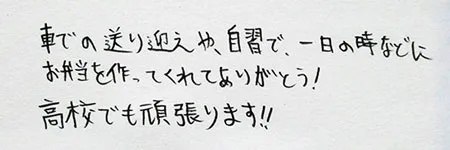 車での送り迎えや、自習で、一日の時などに
お弁当を作ってくれてありがとう!
高校でも頑張ります!!